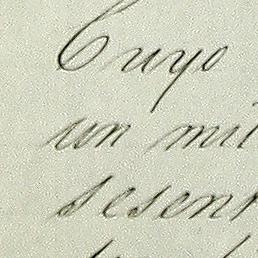 Cuyo
un mil
sesen